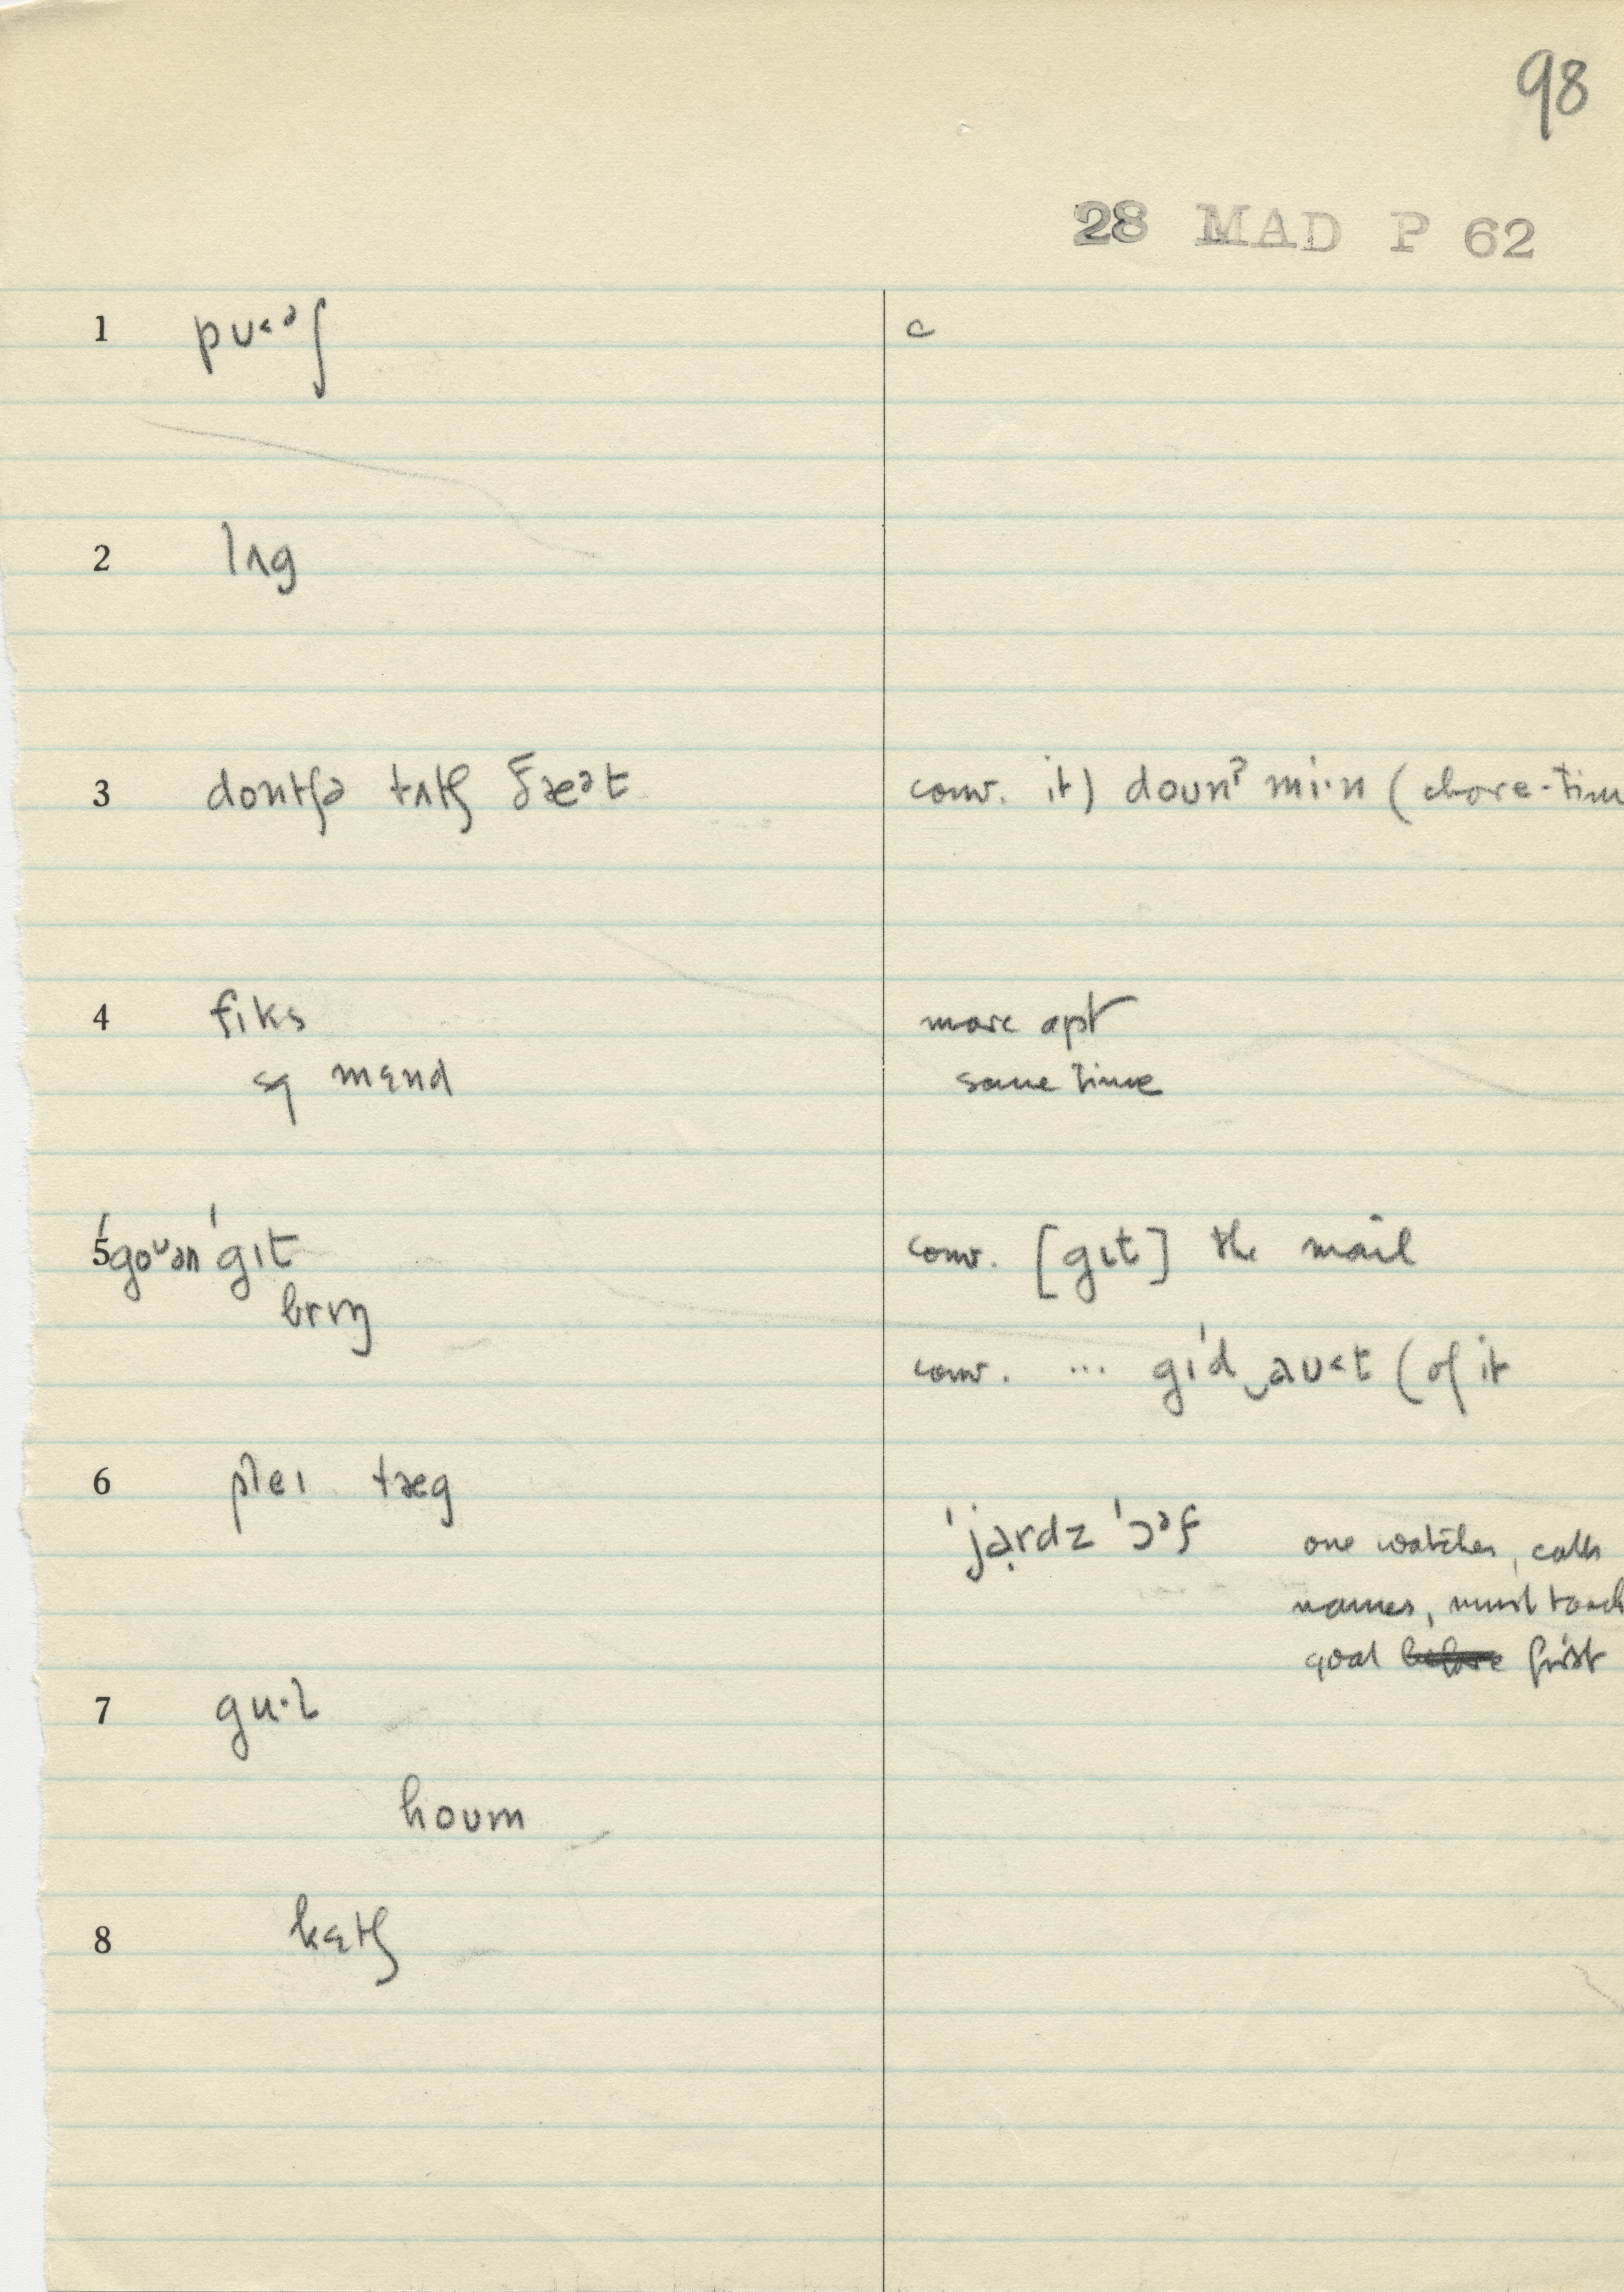 98
28 MAD P 62
1 pʊ˂ᵊʃ c
2 lʌg
3 dontʃə tʌtʃ ðæᵊt conv. it) doʊnˀ mi·n (chore-tim
4 fɪks more apt
mend some time
5 ˈgoᶷən ˈgɪt conv. [gɪt] the mail
brɪŋ
conv. ... gɪd‿aʊ˂t (of it
6 pleɪ tæg
ˈjɑ̣rdz ˈɔᵊf one watches, calls
names, must touch
goal before first
7 gu·l
houm
8 kɛtʃ